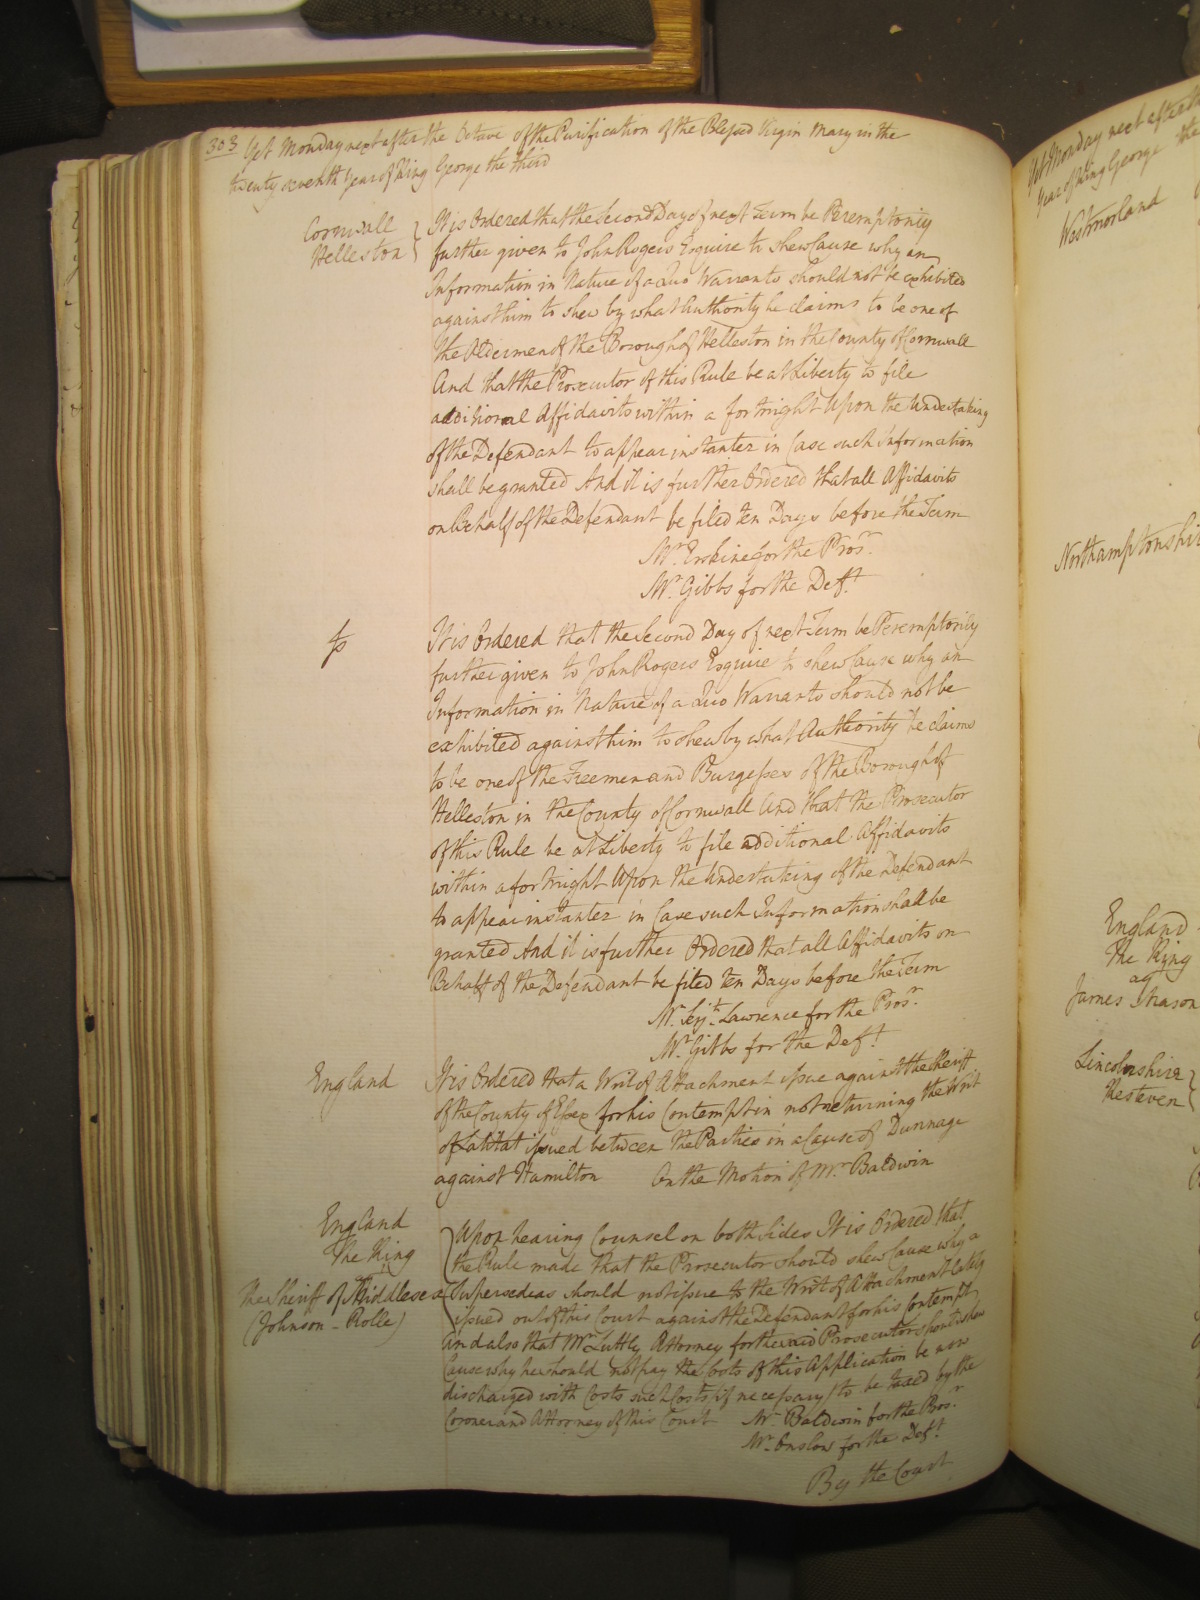 303 Yet Monday next after the Octave of the Purification of the Blessed Virgin Mary in the
twenty seventh Year of King George the third
Cornwall
Helleston
It is Ordered that the Second Day of next Term be Peremptorily
further given to John Rogers Esquire to shew Cause why an
Information in Nature of a Quo Warranto should not be exhibited
against him to shew by what Authority he claims to be one of
the Aldermen of the Borough of Helleston in the County of Cornwall
And that the Prosecutor of this Rule be at Liberty to file
additional Affidavits within a fortnight Upon the Undertaking
of the Defendant to appear instanter in Case such Information
shall be granted And it is further Ordered that all Affidavits
on Behalf of the Defendant be filed ten Days before the Term
Mr. Erskine for the Prosr.
Mr. Gibbs for the Deft.
It is Ordered that the Second Day of next Term be Peremptorily
further given to John Rogers Esquire to shew Cause why an
Information in Nature of a Quo Warranto should not be
exhibited against him to shew by what Authority he claims
to be one of the Freemen and Burgesses of the Borough of
Helleston in the County of Cornwall And that the Prosecutor
of this Rule be at Liberty to file additional Affidavits
within a fortnight Upon the Undertaking of the Defendant
to appear instanter in Case such Information shall be
granted And it is further Ordered that all Affidavits on
Behalf of the Defendant be filed ten Days before the Term
Mr. Serjt. Lawrence for the Prosr.
Mr. Gibbs for the Deft.
England
It is Ordered that a Writ of Attachment issue against the Sheriff
of the County of Essex for his Contempt in not returning the Writ
of Latitat issued between the Parties in a Cause of Dunnage
against Hamilton On the Motion of Mr. Baldwin
England
The King
The Sheriff of Middlesex
(Johnson - Rolle)
Upon hearing Counsel on both Sides It is Ordered that
the Rule made that the Prosecutor should shew Cause why a
Supersedeas should not issue to the Writ of Attachment lately
issued out of this Court against the Defendant for his Contempt
and also that Mr. Luttly Attorney for the said Prosecutor should shew
Cause why he should not pay the Costs of this Application be now
discharged with Costs such Costs (if necessary) to be taxed by the
Coroner and Attorney of this Court Mr. Baldwin for the Prosr.
Mr. Onslow for the Deft.
By the Court
Yet Monday next after
Year of King George the
Westmorland
Northamptonshi
England
The King
ag
James Mason
Lincolnshire
Kesteven